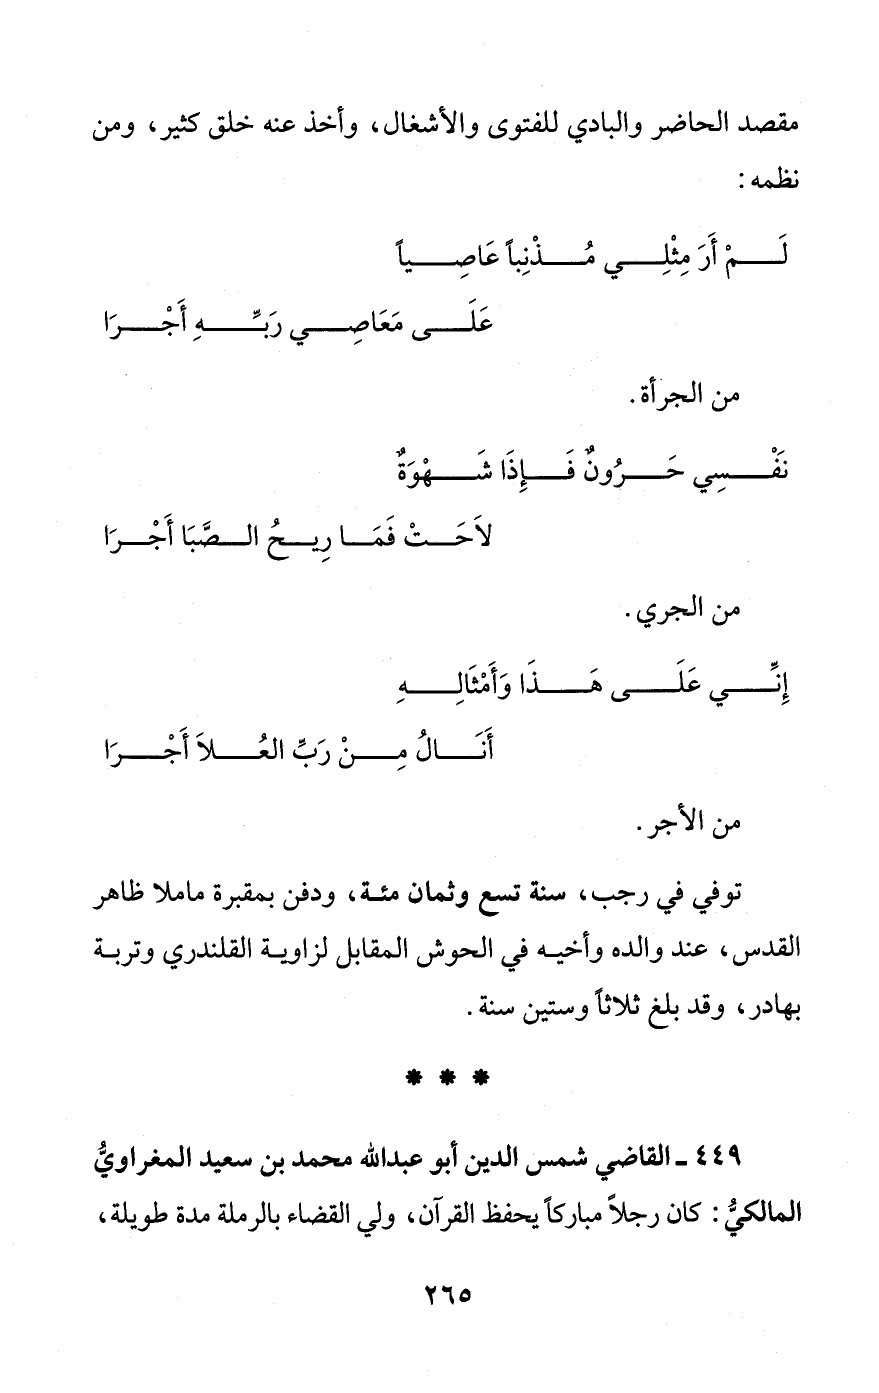 مقصد الحاضر والبادي للفتوى والأشغال، وأخذ عنه خلق كثير، ومن
نظمه:
لَمْ أَرَ مِثْلِي مُذْنِباً عَاصِياً
عَلَى مَعَاصِي رَبِّهِ أَجْرَا
من الجرأة.
نَفْسِي حَرُونٌ فَإِذَا شَهْوَةٌ
لاَحَتْ فَمَا رِيحُ الصَّبَا أَجْرَا
من الجري.
إِنِّي عَلَى هَذَا وَأَمْثَالِهِ
أَنَالُ مِنْ رَبِّ العُلاَ أَجْرَا
من الأجر.
توفي في رجب، سنة تسع وثمان مئة، ودفن بمقبرة ماملا ظاهر
القدس، عند والده وأخيه في الحوش المقابل لزاوية القلندري وتربة
بهادر، وقد بلغ ثلاثاً وستين سنة.
* * *
٤٤٩ - القاضي شمس الدين أبو عبدالله محمد بن سعيد المغراويُّ
المالكيُّ: كان رجلاً مباركاً يحفظ القرآن، ولي القضاء بالرملة مدة طويلة،
٢٦٥